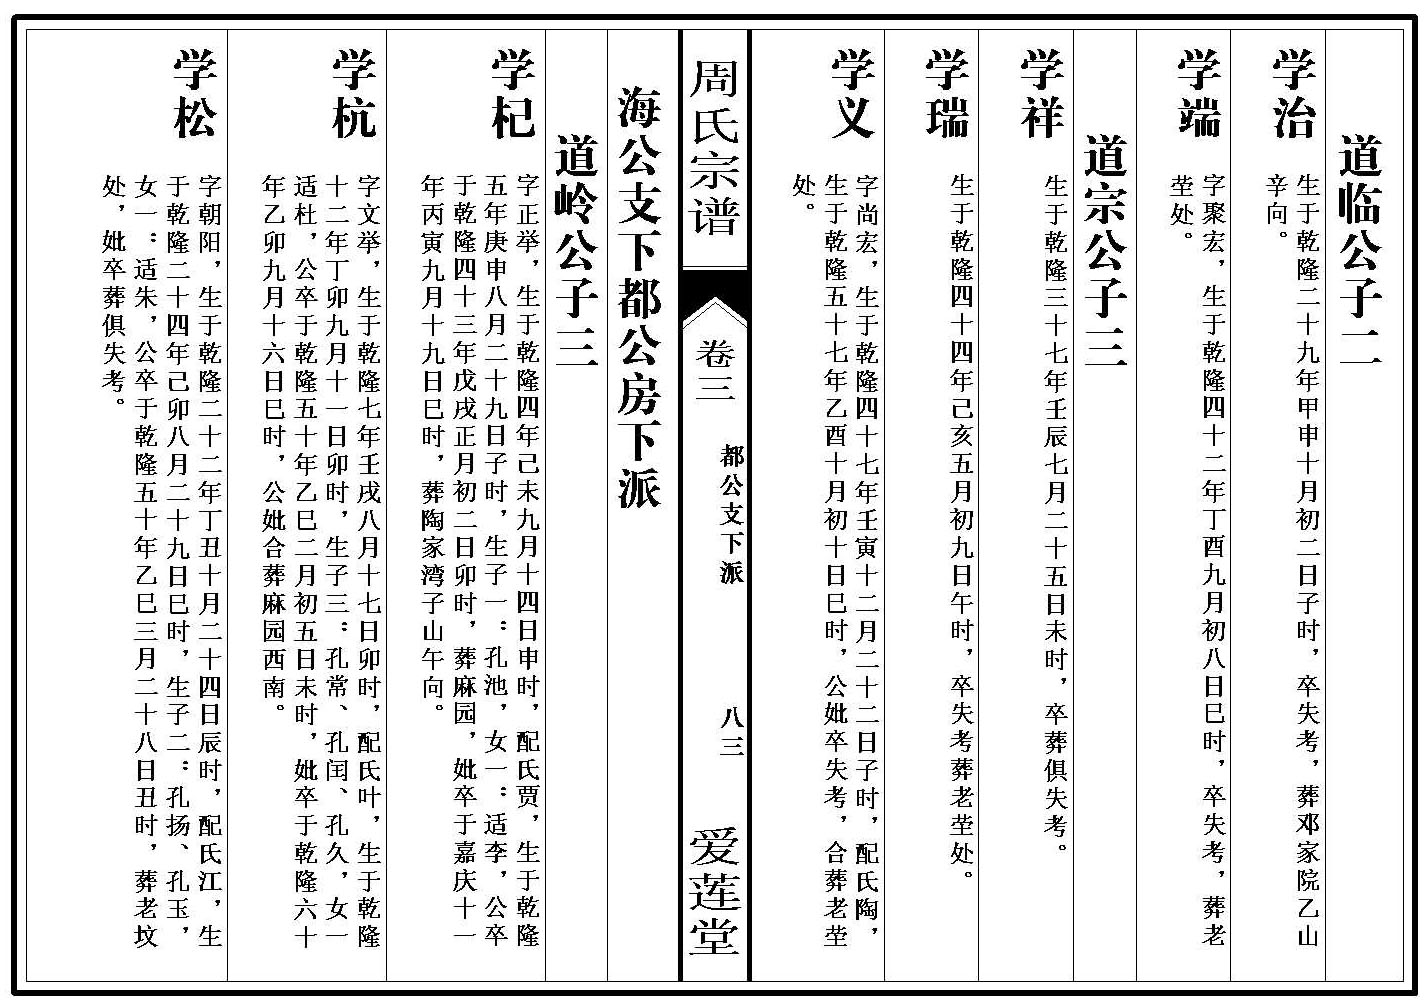 道临公子二
学治
生于乾隆二十九年甲申十月初二日子时，卒失考，葬邓家院乙山
辛向。
学端
字聚宏，生于乾隆四十二年丁酉九月初八日巳时，卒失考，葬老
茔处。
道宗公子三
学祥
生于乾隆三十七年壬辰七月二十五日未时，卒葬俱失考。
学瑞
生于乾隆四十四年己亥五月初九日午时，卒失考葬老茔处。
学义
字尚宏，生于乾隆四十七年壬寅十二月二十二日子时，配氏陶，
生于乾隆五十七年乙酉十月初十日巳时，公妣卒失考，合葬老茔
处。
周氏宗谱
卷三
都公支下派
八三
爱莲堂
海公支下都公房下派
道岭公子三
学杞
字正举，生于乾隆四年己未九月十四日申时，配氏贾，生于乾隆
五年庚申八月二十九日子时，生子一：孔池，女一：适李，公卒
于乾隆四十三年戊戌正月初二日卯时，葬麻园，妣卒于嘉庆十一
年丙寅九月十九日巳时，葬陶家湾子山午向。
学杭
字文举，生于乾隆七年壬戌八月十七日卯时，配氏叶，生于乾隆
十二年丁卯九月十一日卯时，生子三：孔常、孔闰、孔久，女一
适杜，公卒于乾隆五十年乙巳二月初五日未时，妣卒于乾隆六十
年乙卯九月十六日巳时，公妣合葬麻园西南。
学松
字朝阳，生于乾隆二十二年丁丑十月二十四日辰时，配氏江，生
于乾隆二十四年己卯八月二十九日巳时，生子二：孔扬、孔玉，
女一：适朱，公卒于乾隆五十年乙巳三月二十八日丑时，葬老坟
处，妣卒葬俱失考。